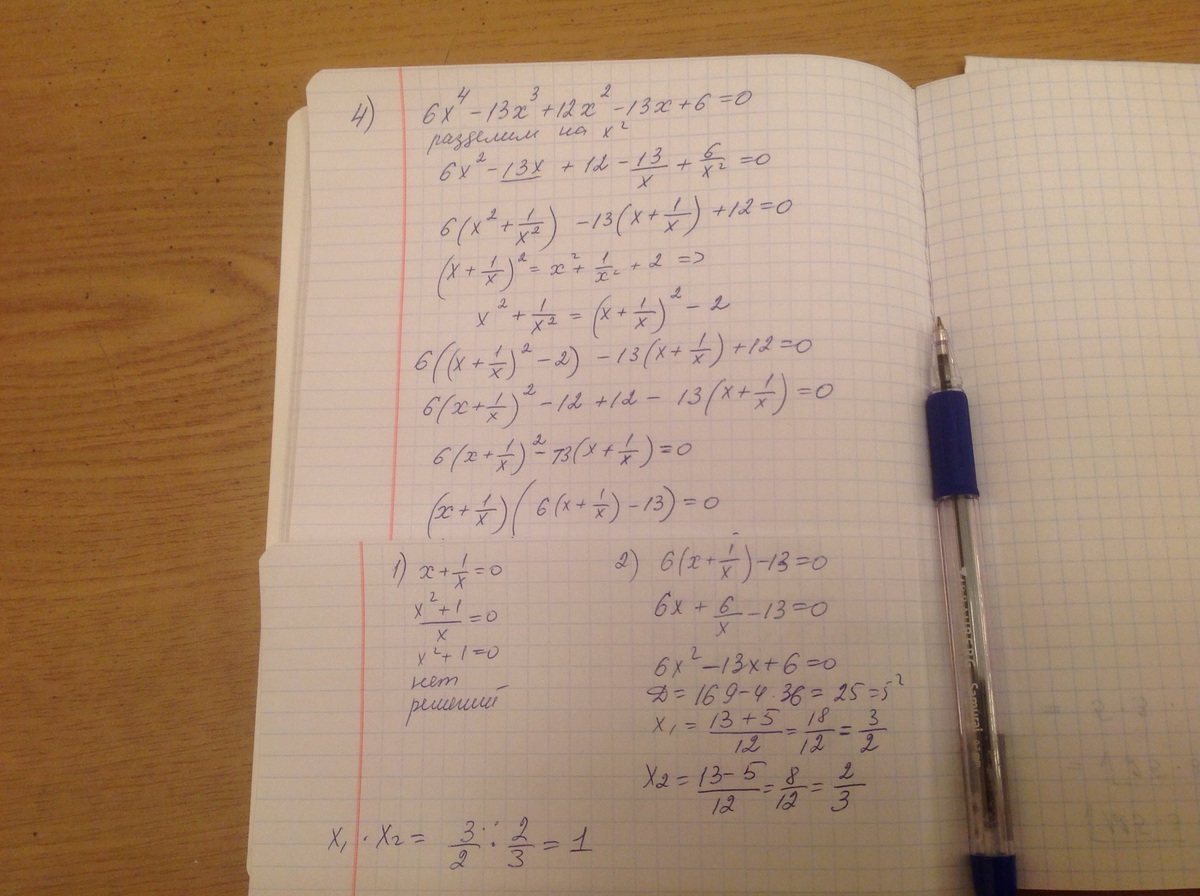 4) 6x⁴ - 13x³ + 12x² - 13x + 6 = 0
разделим на x²
6x² - 13x + 12 - 13/x + 6/x² = 0
6(x² + 1/x²) - 13(x + 1/x) + 12 = 0
(x + 1/x)² = x² + 1/x² + 2 =>
x² + 1/x² = (x + 1/x)² - 2
6((x + 1/x)² - 2) - 13(x + 1/x) + 12 = 0
6(x + 1/x)² - 12 + 12 - 13(x + 1/x) = 0
6(x + 1/x)² - 13(x + 1/x) = 0
(x + 1/x)(6(x + 1/x) - 13) = 0
1) x + 1/x = 0
(x² + 1)/x = 0
x² + 1 = 0
нет
решений
2) 6(x + 1/x) - 13 = 0
6x + 6/x - 13 = 0
6x² - 13x + 6 = 0
D = 169 - 4 · 36 = 25 = 5²
x₁ = (13 + 5)/12 = 18/12 = 3/2
x₂ = (13 - 5)/12 = 8/12 = 2/3
x₁ · x₂ = 3/2 : 2/3 = 1